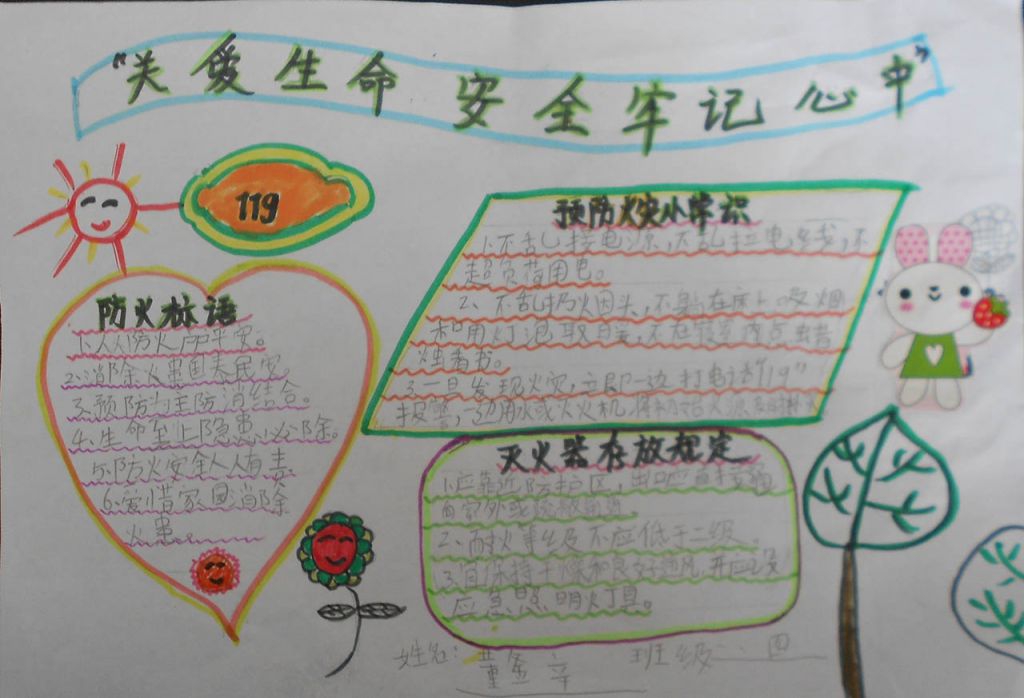 “关爱生命 安全牢记心中”
119
防火标语
1.人人防火户户平安。
2.消除火患国泰民安。
3.预防为主防消结合。
4.生命至上隐患必除。
5.防火安全人人有责
6.爱惜家园消除
火患
预防火灾小常识
1.不乱接电源,不乱拉电线,不
超负荷用电。
2、不乱扔火因头,不躺在床上吸烟
和用灯泡取日,不在寝室内点
烛看书。
3.一旦发现火灾,立即一边打电话"119"
报警,一边用水或灭火机
灭火器存放规定
1.应靠近防护区,出口应直接通
向室外或疏散通道。
2、耐火等级不应低于二级。
3.宜保持干燥和良好通风,并应设
应急照明灯具。
姓名:董金 班级 四